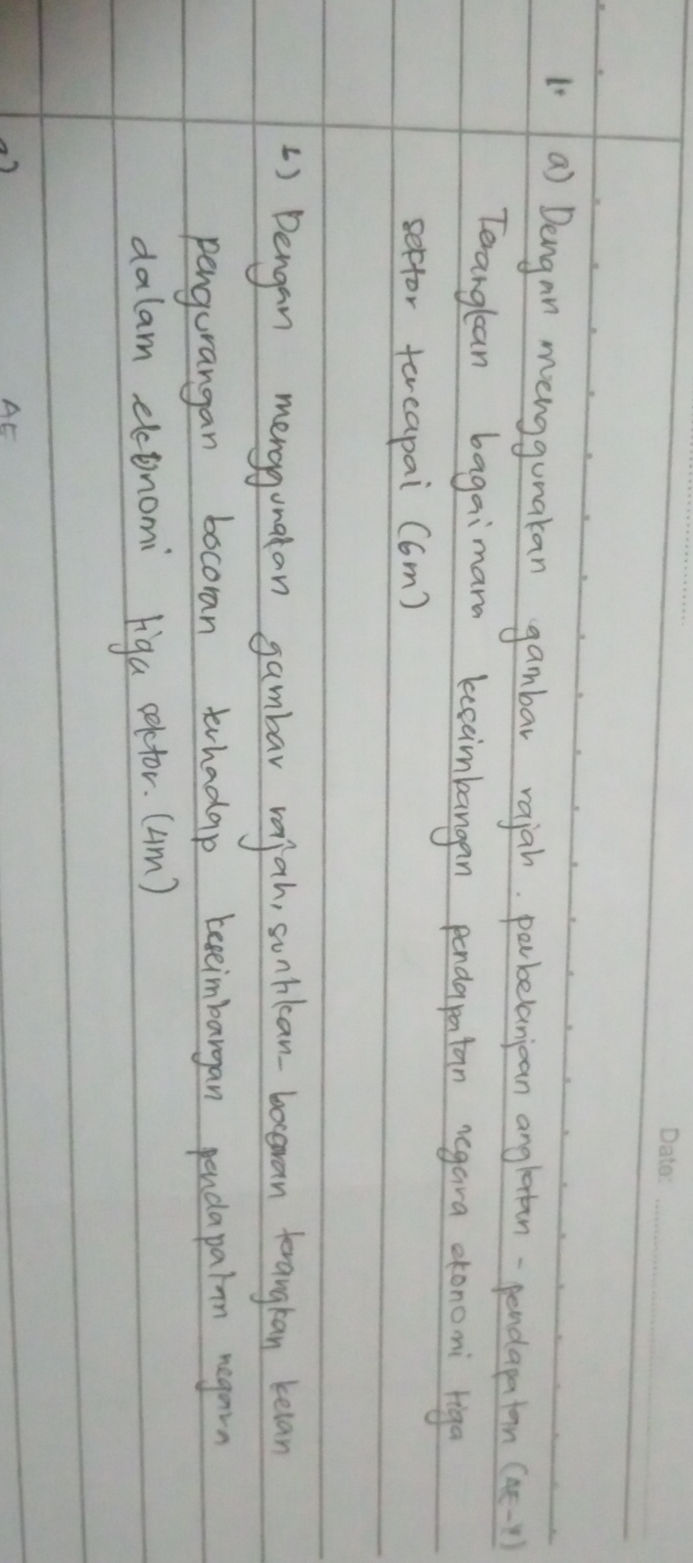 Date:
1. a) Dengan menggunakan gambar rajah. perbelanjaan angkatan - pendapatan (AE-Y)
Terangkan bagaimana keseimbangan pendapatan negara ekonomi tiga
sektor tercapai (6m)
b) Dengan menggunakan gambar rajah, suntikan - bocoran terangkan kesan
pengurangan bocoran terhadap keseimbangan pendapatan negara
dalam ekonomi tiga sektor. (4m)
a)
AE